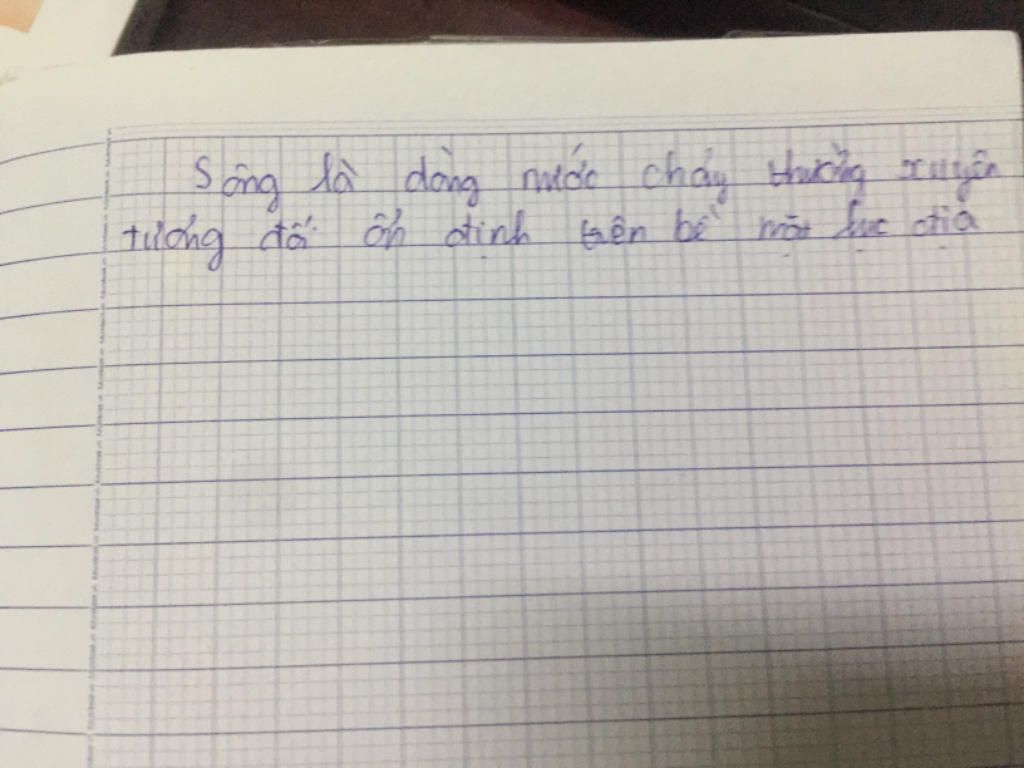 Sông là dòng nước chảy thường xuyên
tương đối ổn định trên bề mặt lục địa